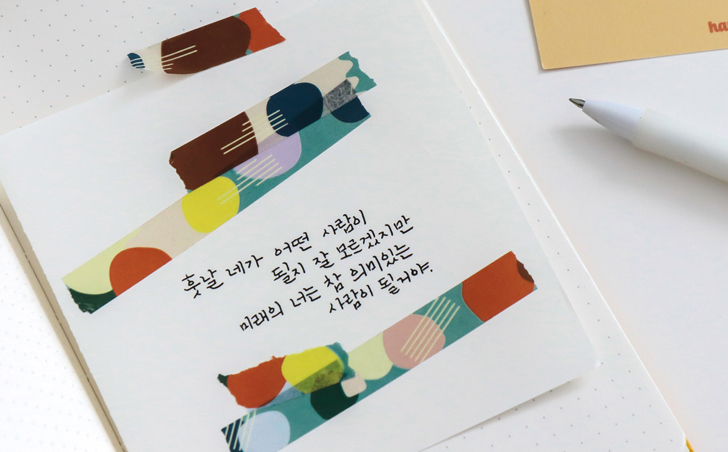 훗날 네가 어떤 사람이
될지 잘 모르겠지만
미래의 너는 참 의미있는
사람이 될거야.
ha